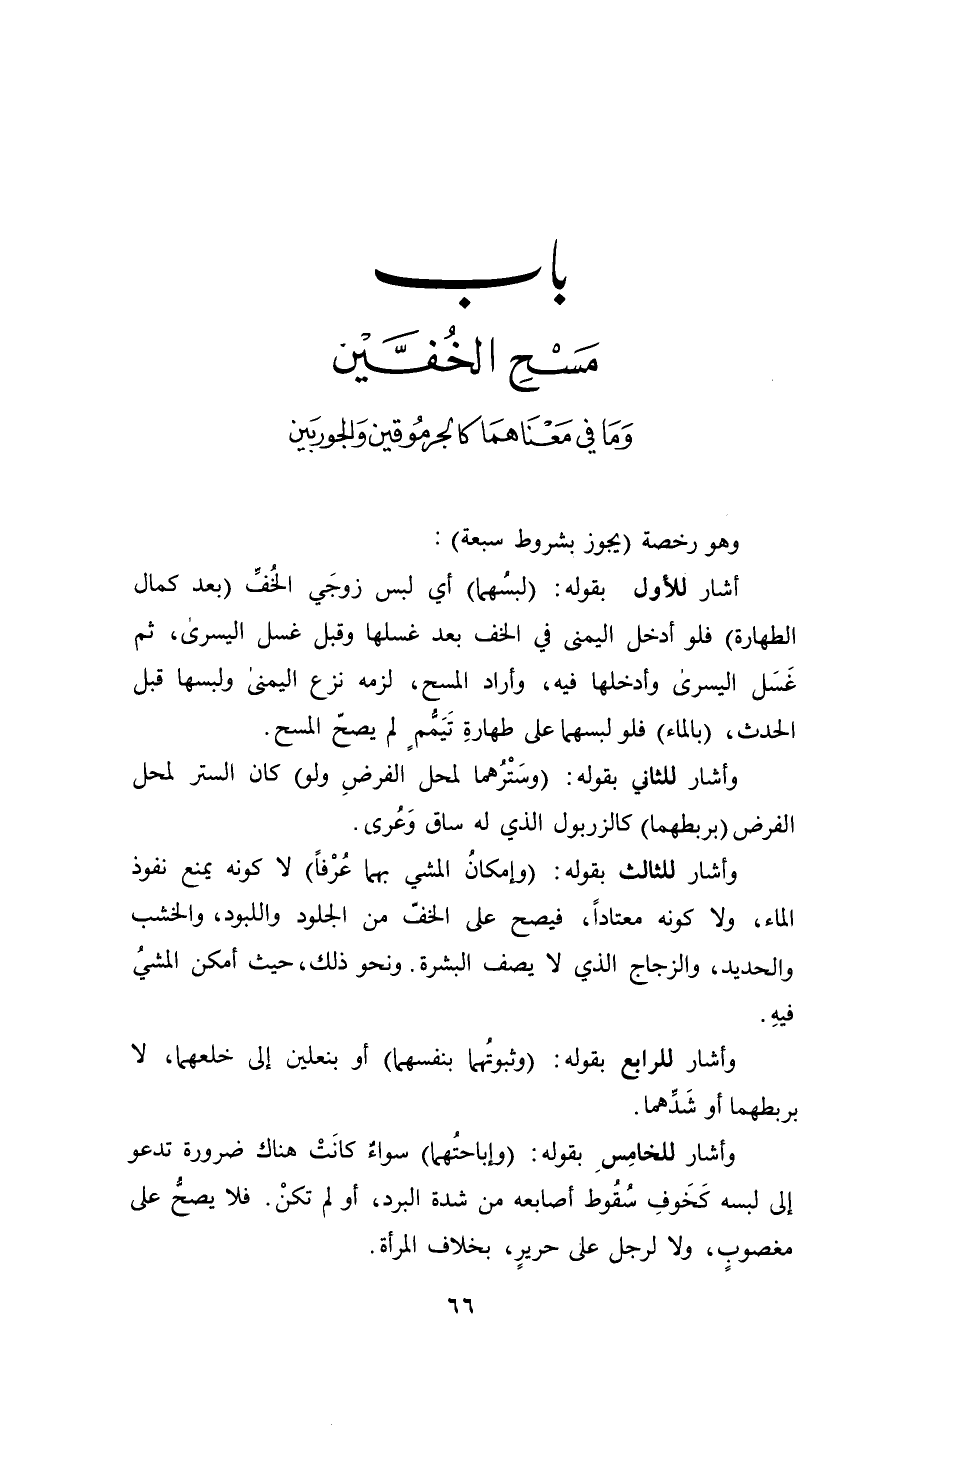 باب
مَسْحِ الخُفَّيْن
وَمَا فِي مَعْنَاهمَا كالجرمُوقين وَالجوربَين
وهو رخصة (يجوز بشروط سبعة) :
أشار للأول بقوله: (لبسُهما) أي لبس زوجَي الخُفِّ (بعد كمال
الطهارة) فلو أدخل اليمنى في الخف بعد غسلها وقبل غسل اليسرىٰ، ثم
غَسَل اليسرىٰ وأدخلها فيه، وأراد المسح، لزمه نزع اليمنىٰ ولبسها قبل
الحدث، (بالماء) فلو لبسهما على طهارةِ تَيَمُّمٍ لم يصحّ المسح.
وأشار للثاني بقوله: (وسَتْرُهما لمحل الفرضِ ولو) كان الستر لمحل
الفرض (بربطهما) كالزربول الذي له ساق وَعُرى.
وأشار للثالث بقوله: (وإمكانُ المشي بهما عُرْفاً) لا كونه يمنع نفوذ
الماء، ولا كونه معتاداً، فيصح على الخفّ من الجلود واللبود، والخشب
والحديد، والزجاج الذي لا يصف البشرة. ونحو ذلك، حيث أمكن المشيُ
فيهِ.
وأشار للرابع بقوله: (وثبوتُهما بنفسهما) أو بنعلين إلى خلعهما، لا
بربطهما أو شَدِّهما.
وأشار للخامِس بقوله: (وإباحتُهما) سواءٌ كانَتْ هناك ضرورة تدعو
إلى لبسه كَخَوفِ سُقُوط أصابعه من شدة البرد، أو لم تكنْ. فلا يصحُّ على
مغصوبٍ، ولا لرجل على حريرٍ، بخلاف المرأة.
٦٦